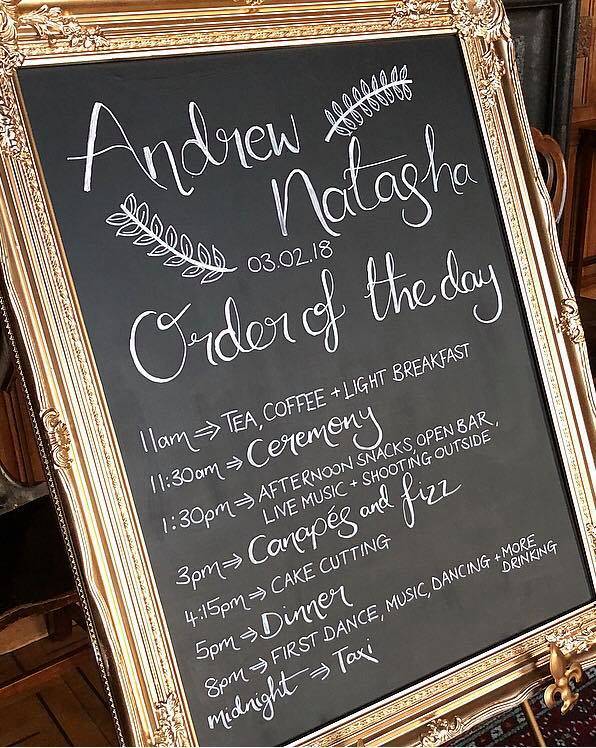 Andrew
Natasha
03.02.18
Order of the day
11am ⇒ TEA, COFFEE + LIGHT BREAKFAST
11:30am ⇒ Ceremony
1:30pm ⇒ AFTERNOON SNACKS, OPEN BAR,
LIVE MUSIC + SHOOTING OUTSIDE
3pm ⇒ Canapés and fizz
4:15pm ⇒ CAKE CUTTING
5pm ⇒ Dinner
8pm ⇒ FIRST DANCE, MUSIC, DANCING + MORE
DRINKING
midnight ⇒ Taxi